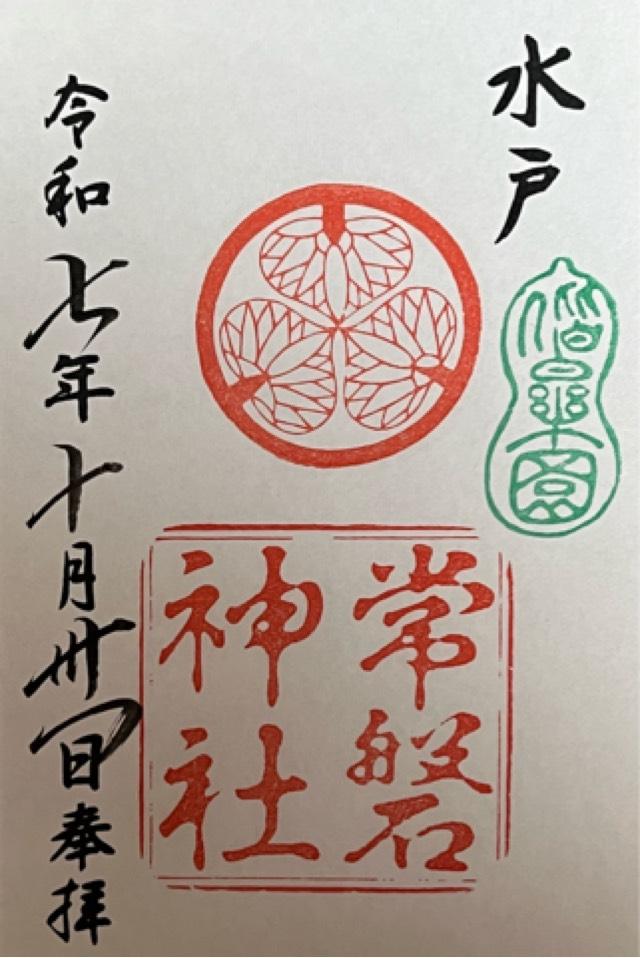 水戸
偕樂園
常磐
神社
令和七年十月卅一日奉拝